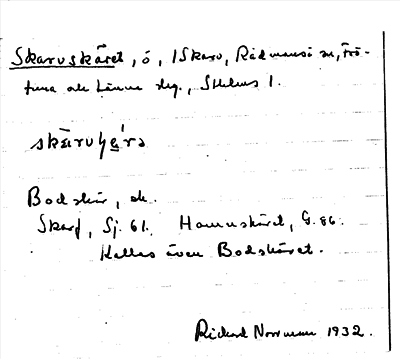 Skaruskäret, ö, 1 Skaru, Rådmansö sn, Frö-
tuna och Länna skg., Sthlms l.
skàruʃę́rə
Bodskär, ek.
Skarf, Sj. 61. Hamnskäret, G. 86.
Kallas även Bodskäret.
Rickard Norrman 1932.